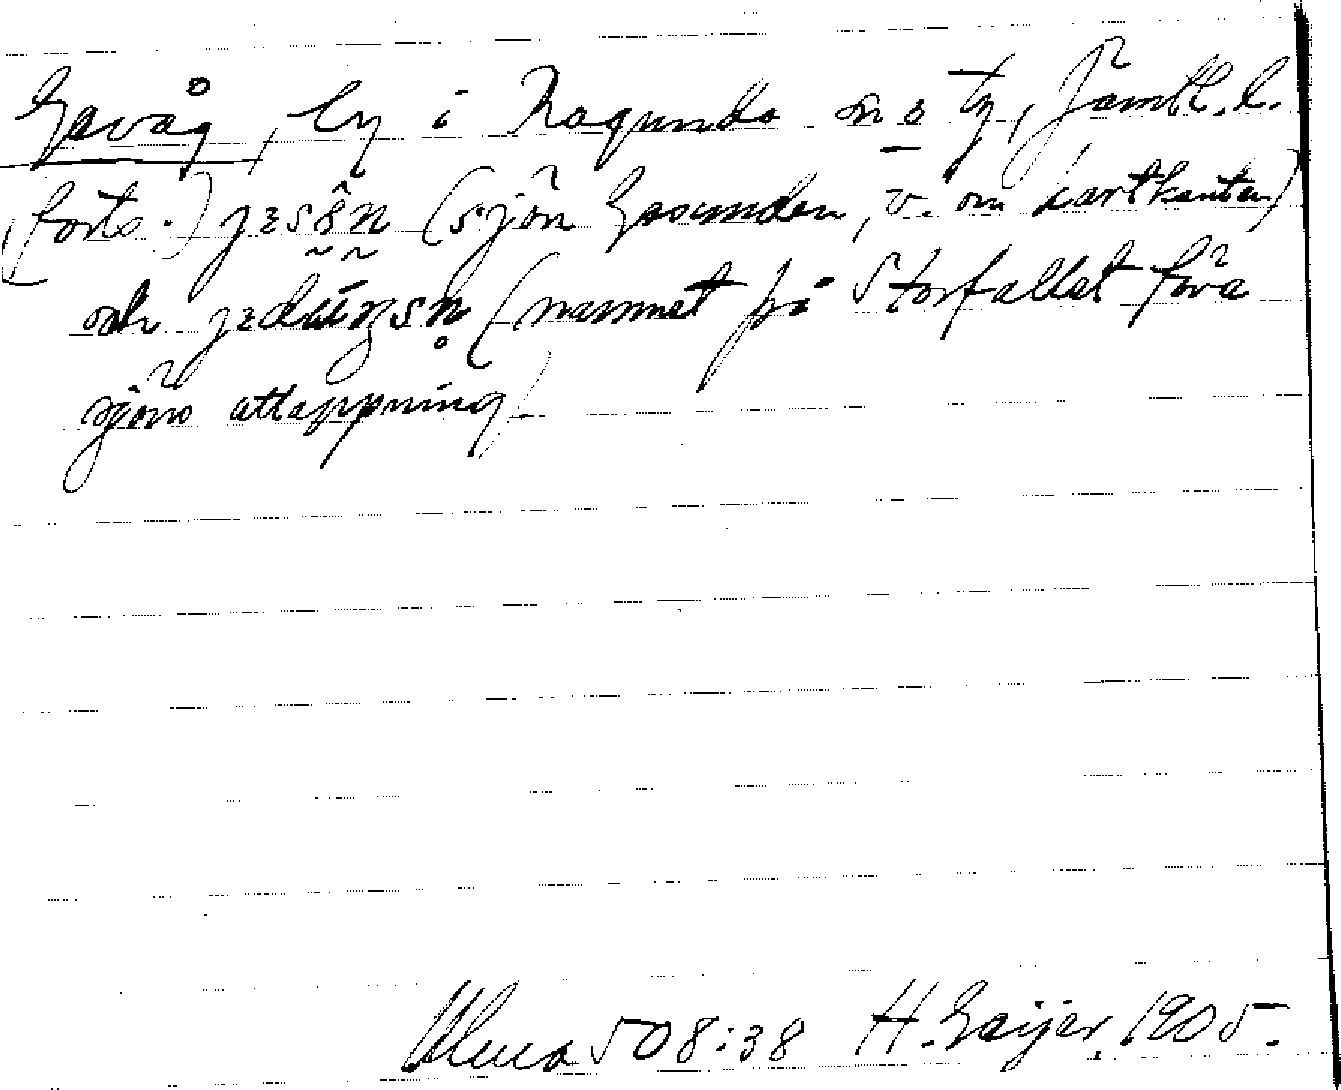 Gevåg, by i Ragunda sn o tg, Jämtl. l.
(forts.) jesôn (sjön Gesunden, v. om kartkanten)
och (namnet på Storfallet före
sjöns attappning)
Ulma 508:38 H. Geijer, 1905.